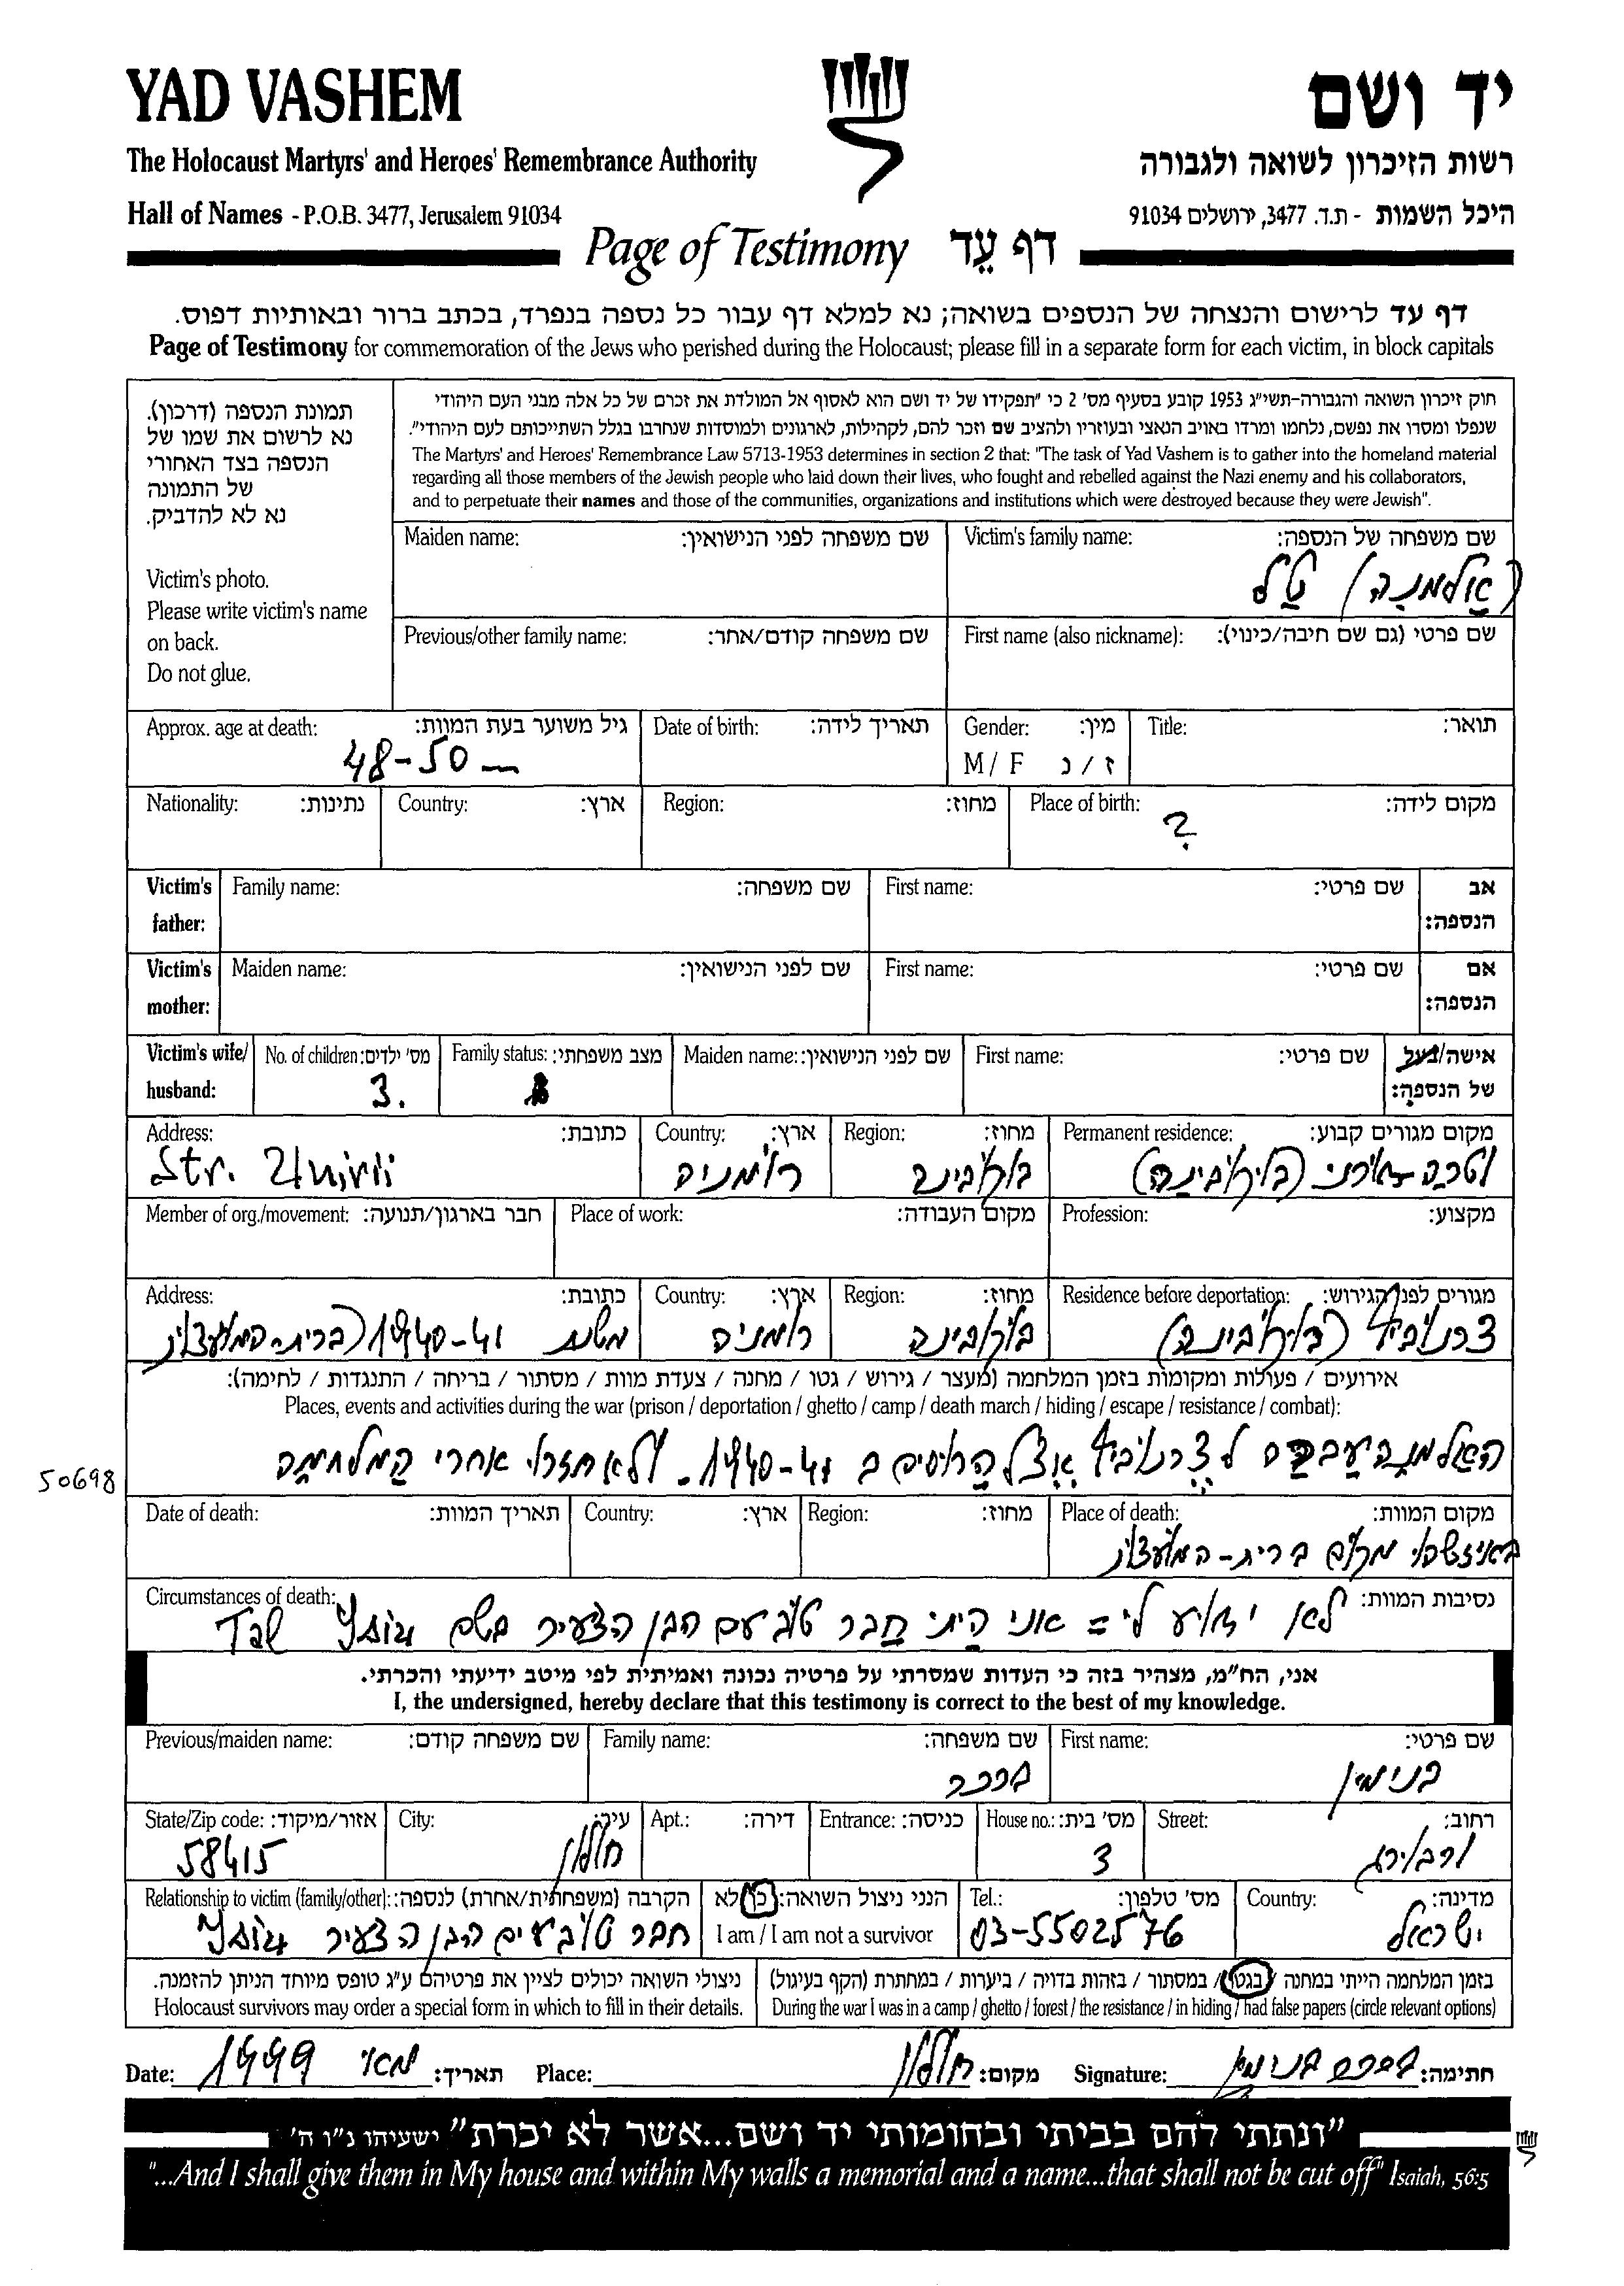 YAD VASHEM
יד ושם
The Holocaust Martyrs' and Heroes' Remembrance Authority
רשות הזיכרון לשואה ולגבורה
Hall of Names - P.O.B. 3477, Jerusalem 91034
היכל השמות - ת.ד. 3477, ירושלים 91034
Page of Testimony דף עֵד
דף עד לרישום והנצחה של הנספים בשואה; נא למלא דף עבור כל נספה בנפרד, בכתב ברור ובאותיות דפוס.
Page of Testimony for commemoration of the Jews who perished during the Holocaust; please fill in a separate form for each victim, in block capitals
תמונת הנספה (דרכון).
נא לרשום את שמו של
הנספה בצד האחורי
של התמונה
נא לא להדביק.
Victim's photo.
Please write victim's name
on back.
Do not glue.
חוק זיכרון השואה והגבורה-תשי"ג 1953 קובע בסעיף מס' 2 כי "תפקידו של יד ושם הוא לאסוף אל המולדת את זכרם של כל אלה מבני העם היהודי
שנפלו ומסרו את נפשם, נלחמו ומרדו באויב הנאצי ובעוזריו ולהציב שם וזכר להם, לקהילות, לארגונים ולמוסדות שנחרבו בגלל השתייכותם לעם היהודי".
The Martyrs' and Heroes' Remembrance Law 5713-1953 determines in section 2 that: "The task of Yad Vashem is to gather into the homeland material
regarding all those members of the Jewish people who laid down their lives, who fought and rebelled against the Nazi enemy and his collaborators,
and to perpetuate their names and those of the communities, organizations and institutions which were destroyed because they were Jewish".
Maiden name: שם משפחה לפני הנישואין:
Victim's family name: שם משפחה של הנספה:
(אַלמנָה) טַל
Previous/other family name: שם משפחה קודם/אחר:
First name (also nickname): שם פרטי (גם שם חיבה/כינוי):
Approx. age at death: גיל משוער בעת המוות:
48-50
Date of birth: תאריך לידה:
Gender: מין:
M / F ז / נ
Title: תואר:
Nationality: נתינות:
Country: ארץ:
Region: מחוז:
Place of birth: מקום לידה:
?
Victim's father: Family name: שם משפחה:
First name: שם פרטי:
אב הנספה:
Victim's mother: Maiden name: שם לפני הנישואין:
First name: שם פרטי:
אם הנספה:
Victim's wife/ husband:
No. of children: מס' ילדים:
3.
Family status: מצב משפחתי:
Maiden name: שם לפני הנישואין:
First name: שם פרטי:
אישה/בעל של הנספה:
Address: כתובת:
Str. Unirii
Country: ארץ:
רומניה
Region: מחוז:
בוקובינה
Permanent residence: מקום מגורים קבוע:
וטרה-דורני (בוקובינה)
Member of org./movement: חבר בארגון/תנועה:
Place of work: מקום העבודה:
Profession: מקצוע:
Address: כתובת:
משנת 1940-41 (ברית-המועצות
Country: ארץ:
רומניה
Region: מחוז:
בוקובינה
Residence before deportation: מגורים לפני הגירוש:
צרנוביץ (בוקובינה)
אירועים / פעולות ומקומות בזמן המלחמה (מעצר / גירוש / גטו / מחנה / צעדת מוות / מסתור / בריחה / התנגדות / לחימה):
Places, events and activities during the war (prison / deportation / ghetto / camp / death march / hiding / escape / resistance / combat):
האלמנה עברה לצרנוביץ אצל הרוסים ב 1940-41. ולא חזרו אחרי המלחמה
50698
Date of death: תאריך המוות:
Country: ארץ:
Region: מחוז:
Place of death: מקום המוות:
באיזשהו מקום ברית-המועצות
Circumstances of death: נסיבות המוות:
לא ידוע לי = אני הייתי חבר טוב עם הבן הצעיר בשם Tal
אני, הח"מ, מצהיר בזה כי העדות שמסרתי על פרטיה נכונה ואמיתית לפי מיטב ידיעתי והכרתי.
I, the undersigned, hereby declare that this testimony is correct to the best of my knowledge.
Previous/maiden name: שם משפחה קודם:
Family name: שם משפחה:
First name: שם פרטי:
בנימין
State/Zip code: אזור/מיקוד:
58415
City: עיר:
חולון
Apt.: דירה:
Entrance: כניסה:
House no.: מס' בית:
3
Street: רחוב:
ורבורג
Relationship to victim (family/other): הקרבה (משפחתית/אחרת) לנספה:
חבר טוב עם הבן הצעיר
הנני ניצול השואה: כן לא
I am / I am not a survivor
Tel.: מס' טלפון:
03-5502576
Country: מדינה:
ישראל
ניצולי השואה יכולים לציין את פרטיהם ע"ג טופס מיוחד הניתן להזמנה.
Holocaust survivors may order a special form in which to fill in their details.
בזמן המלחמה הייתי במחנה / בגטו / במסתור / בזהות בדויה / ביערות / במחתרת (הקף בעיגול)
During the war I was in a camp / ghetto / forest / the resistance / in hiding / had false papers (circle relevant options)
Date: 1999 מאי תאריך:
Place: חולון מקום:
Signature: חתימה:
"ונתתי להם בביתי ובחומותי יד ושם...אשר לא יכרת" ישעיהו נ"ו ה'
"...And I shall give them in My house and within My walls a memorial and a name...that shall not be cut off" Isaiah, 56:5